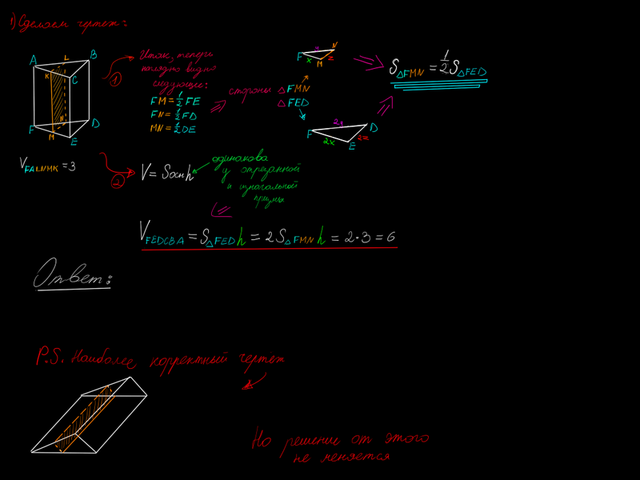 1) Сделаем чертеж:
A
L
B
K
C
F
N
D
M
E
V FALNMK = 3
1
Итак, теперь
видим
следующее:
FM = 1/2 FE
FN = 1/2 FD
MN = 1/2 DE
=> стороны
△ FMN
△ FED
F 2 N
x M
=>
F 2x D
2x E 2z
=>
S△FMN = 1/2 S△FED
2
V = Sосн h
одинакова
у отрезанной
и изначальной
призмы
V FEDCBA = S△FED h = 2S△FMN h = 2·3 = 6
Ответ:
P.S. Наиболее корректный чертеж
Но решение от этого
не меняется